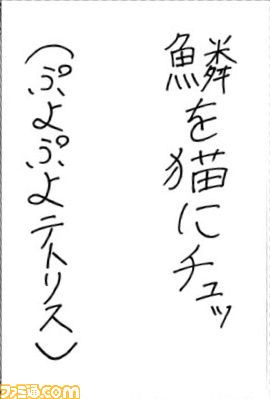 鱗を猫にチュッ
（ぷよぷよテトリス）
ファミ通.com